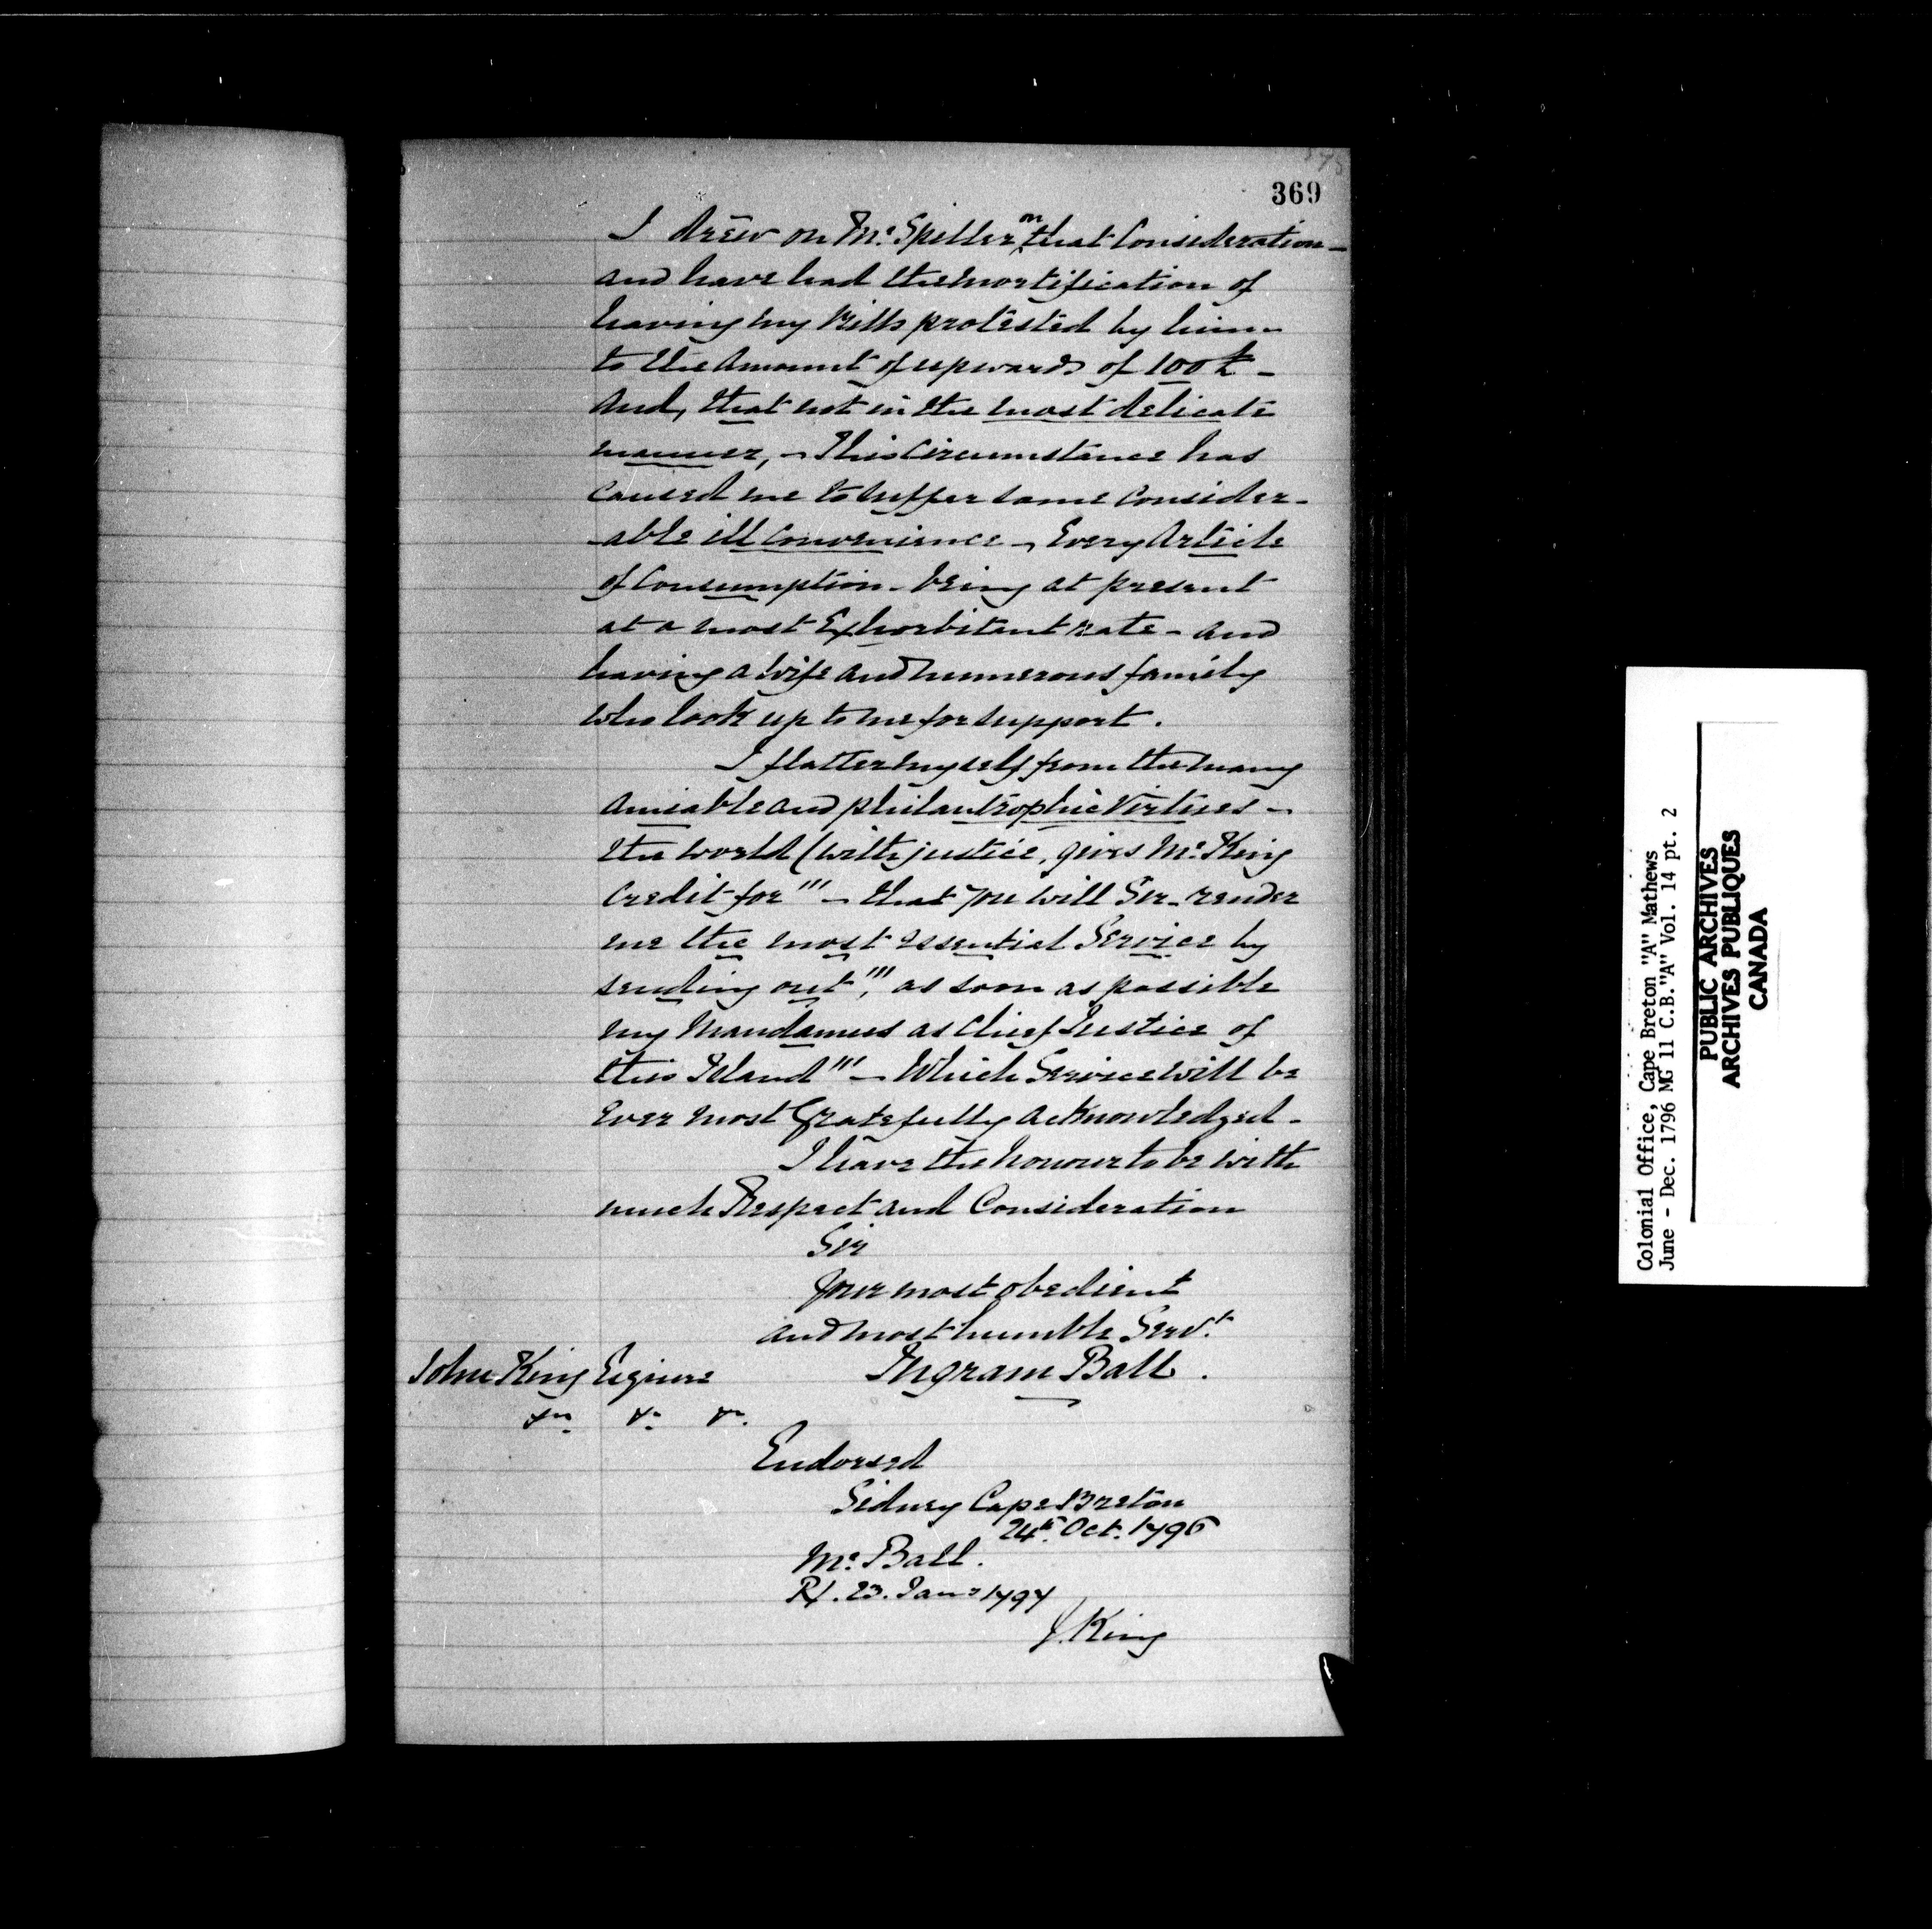 369
I drew on Mr. Spiller on that Consideration -
and have had the mortification of
having my Bills protested by him -
to the Amount of upwards of 100£ -
And, that not in the most delicate
manner, - This Circumstance has
caused me to suffer some Consider-
-able ill convenience - Every Article
of Consumption - being at present
at a most Exhorbitant rate - and
having a Wife and numerous family
who look up to me for support.
I flatter myself from the many
amiable and philantrophic Virtues -
the World (with justice, gives Mr. King
Credit for''' - that you will Sir - render
me the most essential Service by
sending out''', as soon as possible
my Mandamus as Chief Justice of
this Island''' - Which Service will be
Ever most Gratefully acknowledged -
I have the honour to be with
much Respect and Consideration
Sir
Your most obedient
and most humble Servt.
John King Esquire
Ingram Ball.
Endorsed
Sidney Cape Breton
24th. Oct. 1796
Mr. Ball.
R/. 23. Jany 1797
J. King
Colonial Office, Cape Breton "A" Mathews
June - Dec. 1796 MG 11 C.B."A" Vol. 14 pt. 2
PUBLIC ARCHIVES
ARCHIVES PUBLIQUES
CANADA